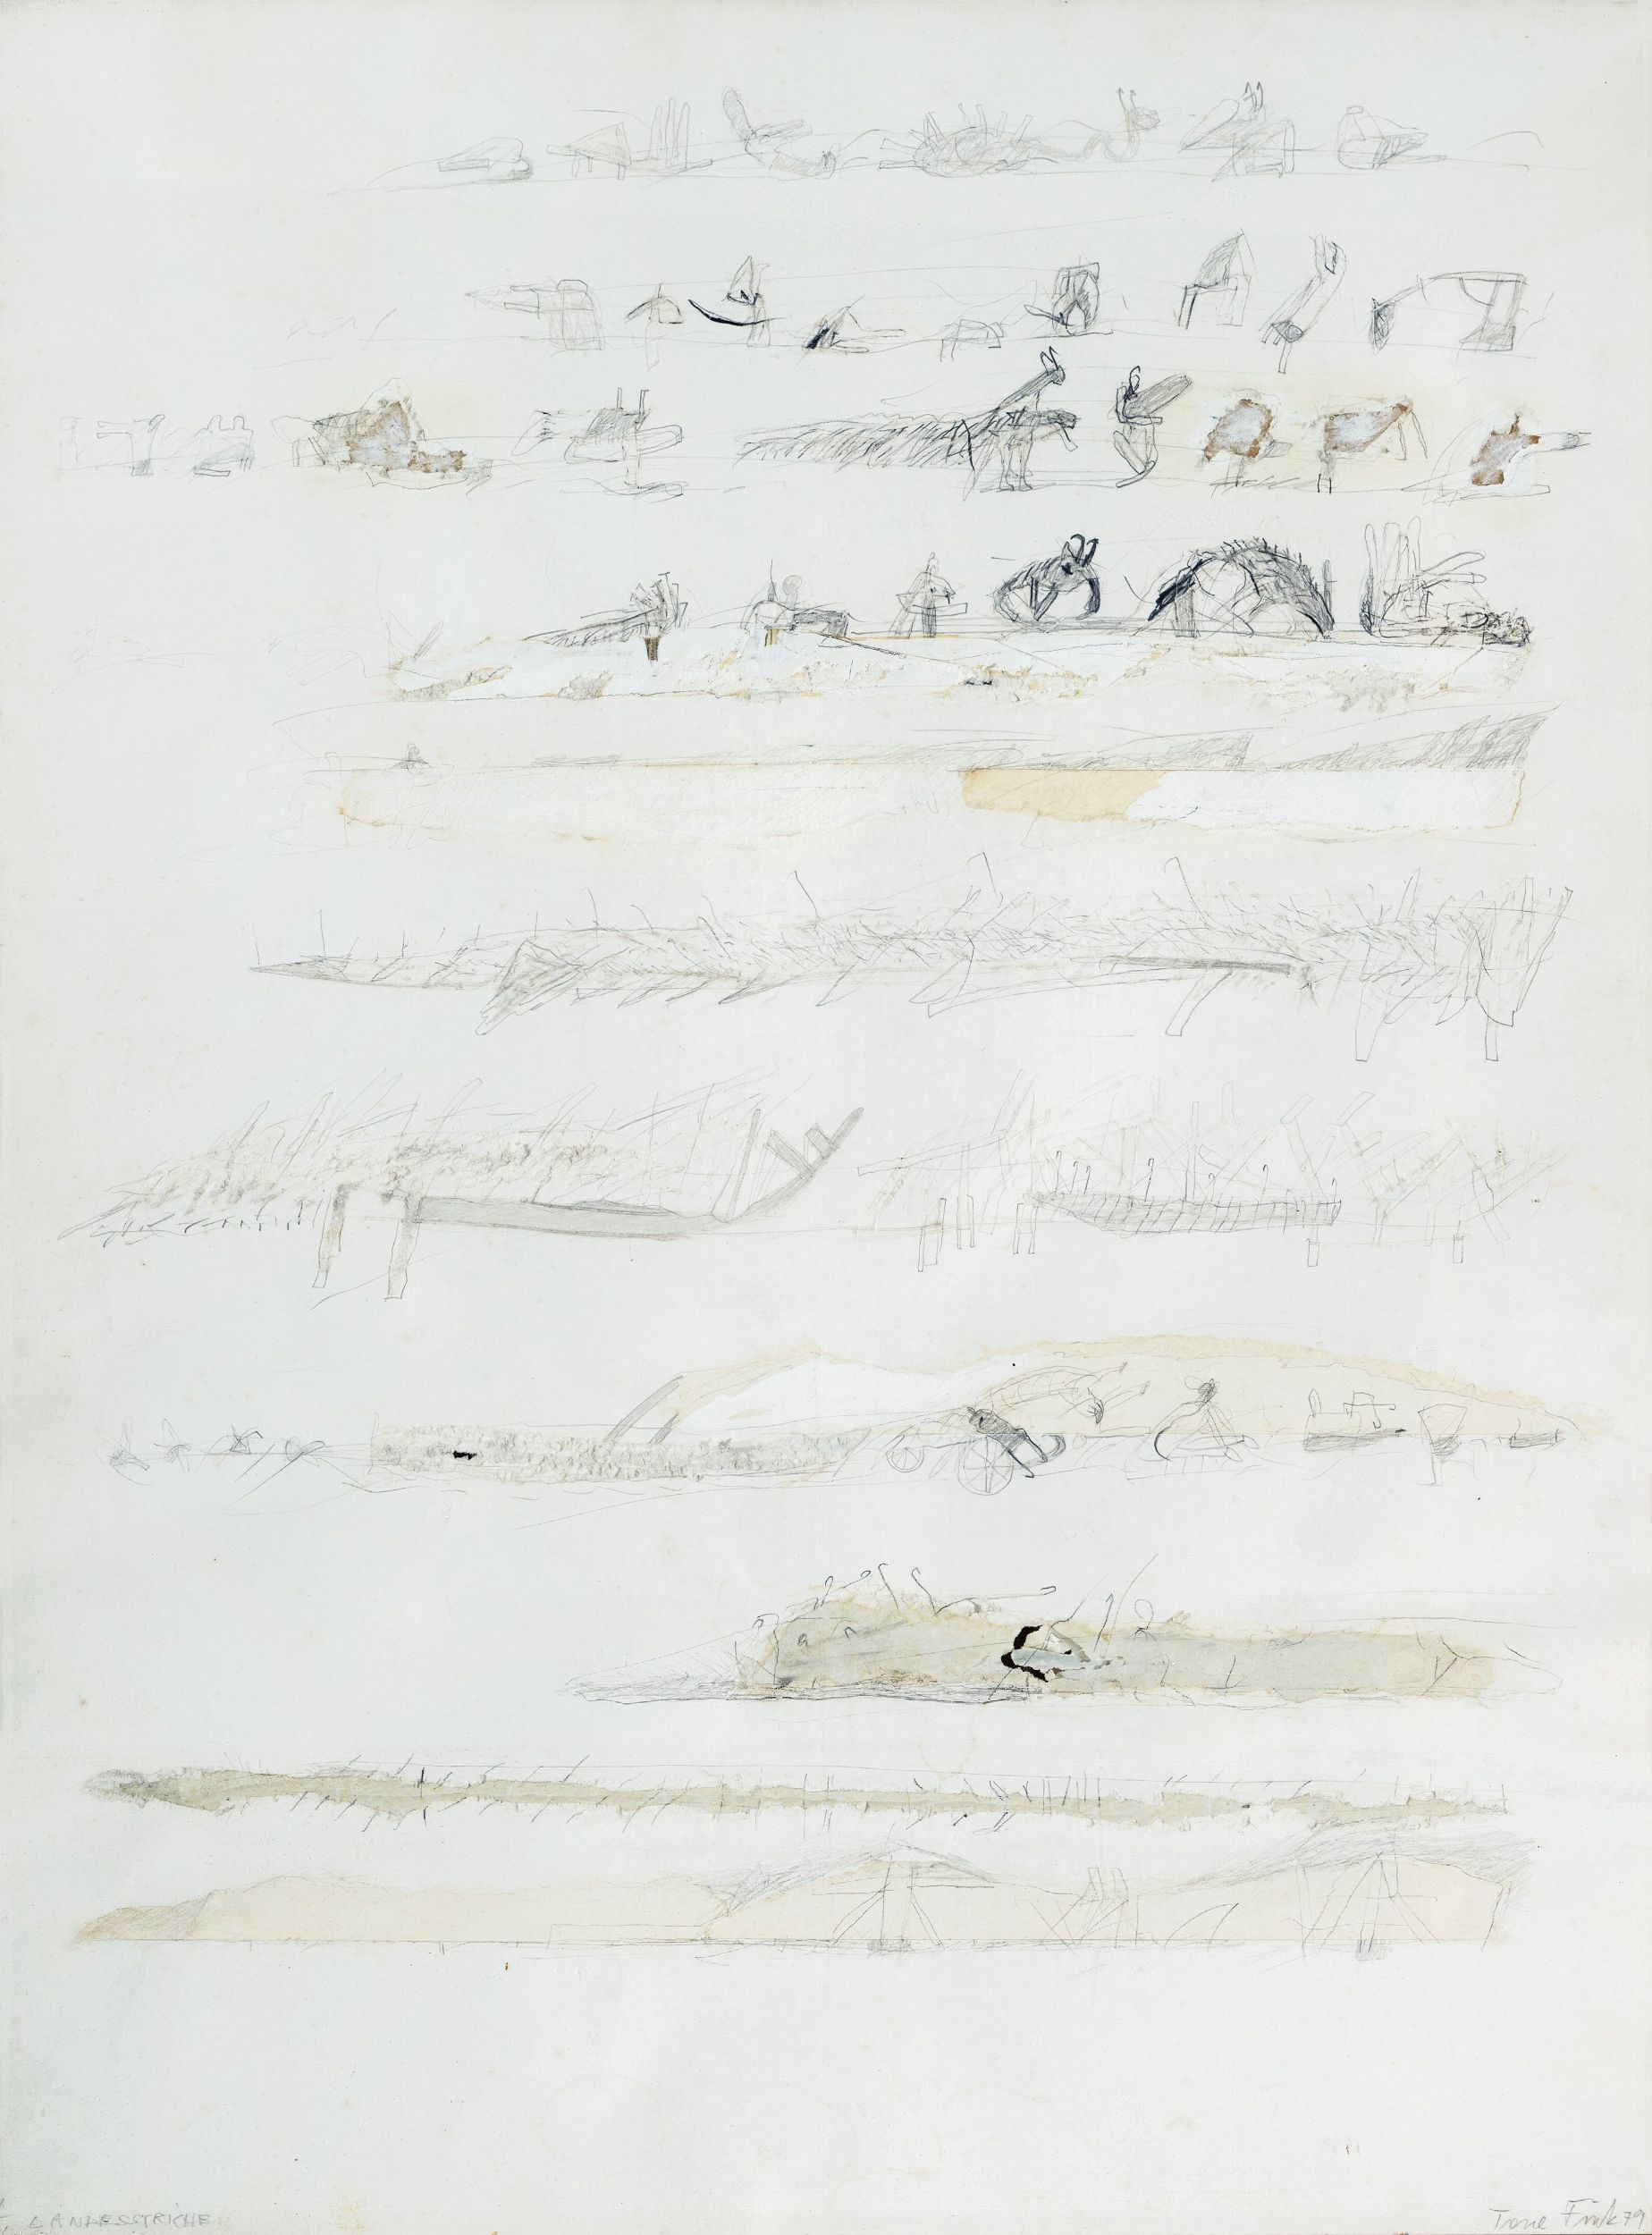 LANDESSTRICHE
Tone Fink 79